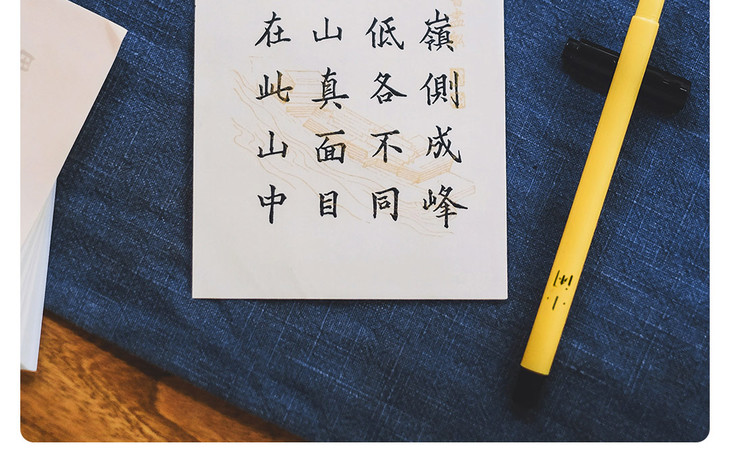 嶺側成峰
低各不同
山真面目
在此山中